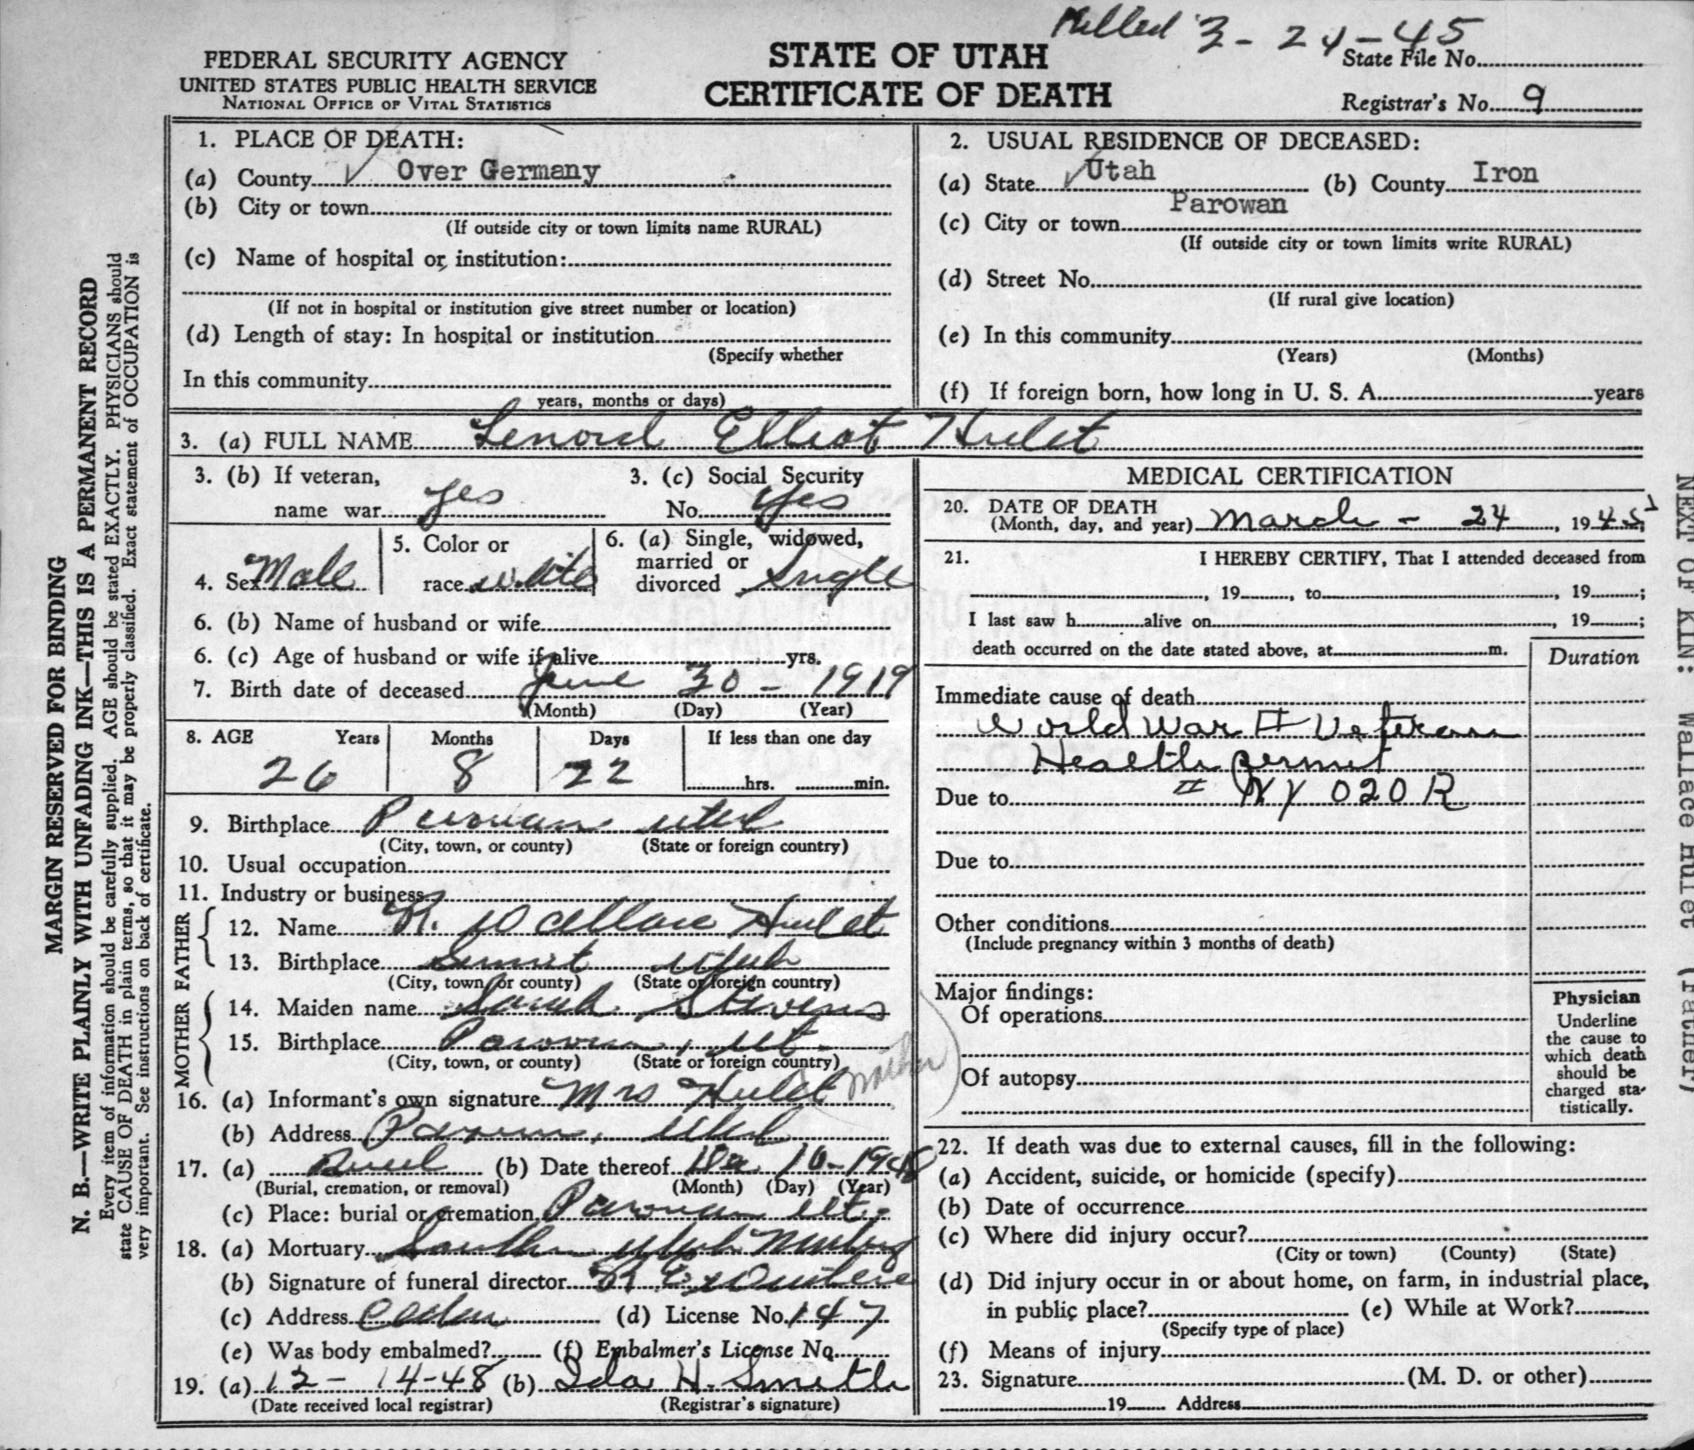 Killed 3-24-45
FEDERAL SECURITY AGENCY
UNITED STATES PUBLIC HEALTH SERVICE
NATIONAL OFFICE OF VITAL STATISTICS
STATE OF UTAH
CERTIFICATE OF DEATH
State File No.
Registrar's No. 9
1. PLACE OF DEATH:
(a) County Over Germany
(b) City or town
(If outside city or town limits name RURAL)
(c) Name of hospital or institution:
(If not in hospital or institution give street number or location)
(d) Length of stay: In hospital or institution
(Specify whether
In this community
years, months or days)
2. USUAL RESIDENCE OF DECEASED:
(a) State Utah (b) County Iron
(c) City or town Parowan
(If outside city or town limits write RURAL)
(d) Street No.
(If rural give location)
(e) In this community
(Years) (Months)
(f) If foreign born, how long in U. S. A. years
3. (a) FULL NAME Lenord Elliot Hulet
3. (b) If veteran, 3. (c) Social Security
name war yes No. yes
4. Sex Male 5. Color or race white 6. (a) Single, widowed, married or divorced Single
6. (b) Name of husband or wife
6. (c) Age of husband or wife if alive yrs.
7. Birth date of deceased June 30 - 1919
(Month) (Day) (Year)
8. AGE Years Months Days If less than one day
26 8 22 hrs. min.
9. Birthplace Parowan Utah
(City, town, or county) (State or foreign country)
10. Usual occupation
11. Industry or business
FATHER
12. Name R. Wallace Hulet
13. Birthplace Summit Utah
(City, town or county) (State or foreign country)
MOTHER
14. Maiden name Sarah Stevens
15. Birthplace Parowan, Ut.
(City, town, or county) (State or foreign country)
16. (a) Informant's own signature Mrs Hulet (mother)
(b) Address Parowan, Utah
17. (a) Burial (b) Date thereof Dec 10-1948
(Burial, cremation, or removal) (Month) (Day) (Year)
(c) Place: burial or cremation Parowan Ut.
18. (a) Mortuary Southern Utah Mortuary
(b) Signature of funeral director
(c) Address Cedar (d) License No. 147
(e) Was body embalmed? (f) Embalmer's License No.
19. (a) 12-14-48 (b) Ida H. Smith
(Date received local registrar) (Registrar's signature)
MEDICAL CERTIFICATION
20. DATE OF DEATH
(Month, day, and year) March - 24, 1945
21. I HEREBY CERTIFY, That I attended deceased from
, 19 , to , 19 ;
I last saw h alive on , 19 ;
death occurred on the date stated above, at m.
Duration
Immediate cause of death
World War II Veteran
Health permit
Due to # NY 020 R
Due to
Other conditions
(Include pregnancy within 3 months of death)
Major findings:
Of operations
Of autopsy
Physician
Underline
the cause to
which death
should be
charged sta-
tistically.
22. If death was due to external causes, fill in the following:
(a) Accident, suicide, or homicide (specify)
(b) Date of occurrence
(c) Where did injury occur?
(City or town) (County) (State)
(d) Did injury occur in or about home, on farm, in industrial place,
in public place? (e) While at Work?
(Specify type of place)
(f) Means of injury
23. Signature (M. D. or other)
19 Address
MARGIN RESERVED FOR BINDING
N. B.—WRITE PLAINLY WITH UNFADING INK—THIS IS A PERMANENT RECORD
Every item of information should be carefully supplied. AGE should be stated EXACTLY. PHYSICIANS should
state CAUSE OF DEATH in plain terms, so that it may be properly classified. Exact statement of OCCUPATION is
very important. See instructions on back of certificate.
NEXT OF KIN: Wallace Hulet (Father)